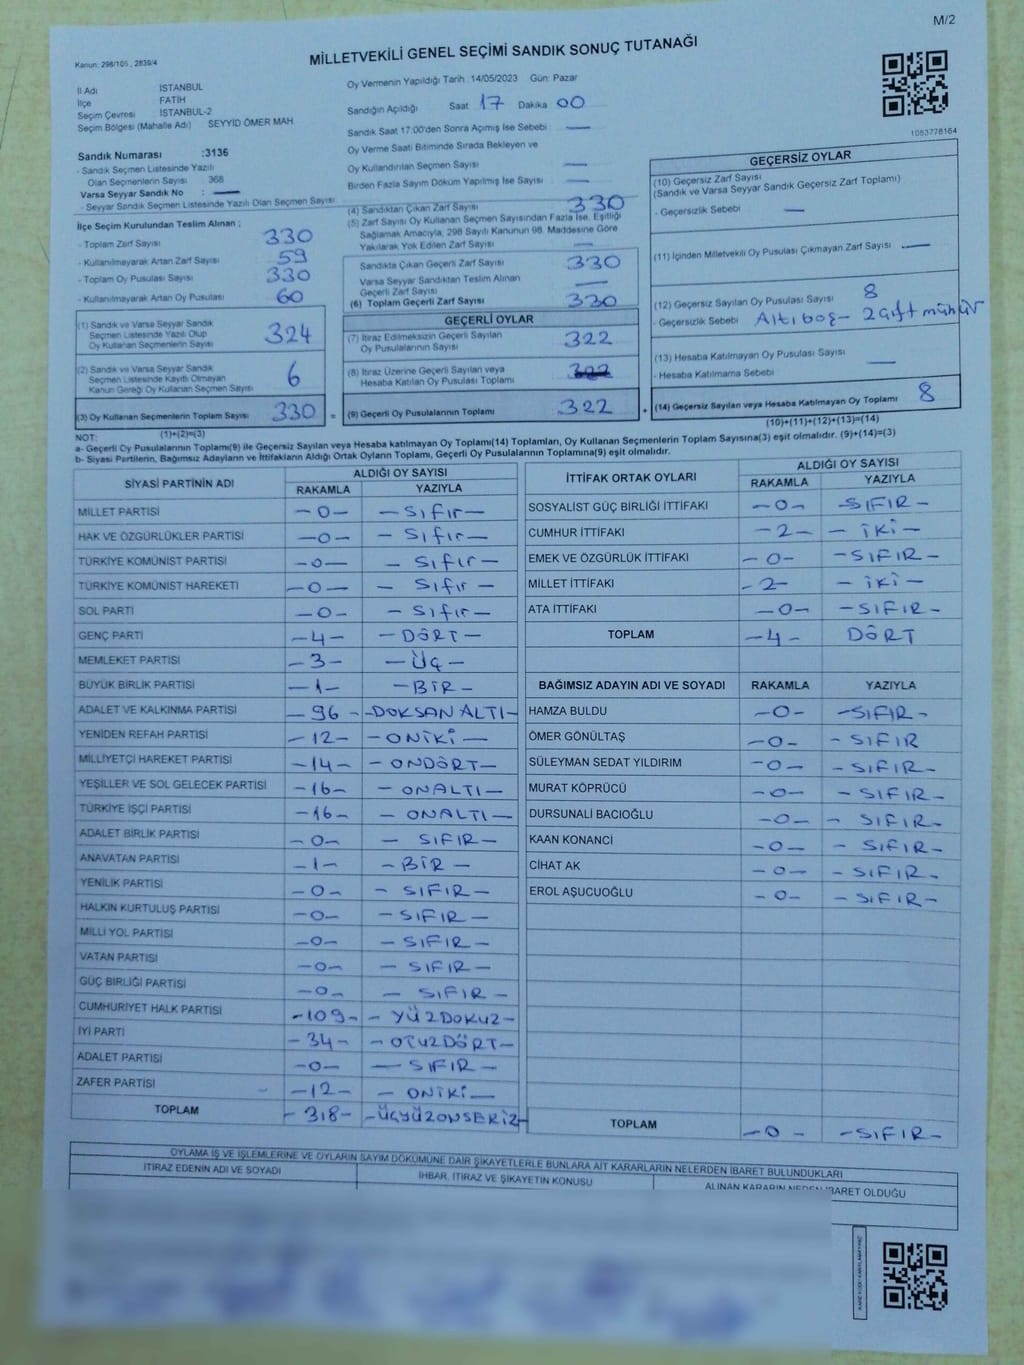 M/2
Kanun: 298/105, 2839/4
MİLLETVEKİLİ GENEL SEÇİMİ SANDIK SONUÇ TUTANAĞI
İl Adı İSTANBUL
İlçe FATİH
Seçim Çevresi İSTANBUL-2
Seçim Bölgesi (Mahalle Adı) SEYYİD ÖMER MAH.
Sandık Numarası :3136
- Sandık Seçmen Listesinde Yazılı
Olan Seçmenlerin Sayısı : 368
Varsa Seyyar Sandık No : —
- Seyyar Sandık Seçmen Listesinde Yazılı Olan Seçmen Sayısı
Oy Vermenin Yapıldığı Tarih :14/05/2023 Gün: Pazar
Sandığın Açıldığı Saat 17 Dakika 00
Sandık Saat 17:00'den Sonra Açılmış İse Sebebi : —
Oy Verme Saati Bitiminde Sırada Bekleyen ve
Oy Kullandırılan Seçmen Sayısı —
Birden Fazla Sayım Döküm Yapılmış İse Sayısı —
1083778164
İlçe Seçim Kurulundan Teslim Alınan ;
- Toplam Zarf Sayısı 330
- Kullanılmayarak Artan Zarf Sayısı 59
- Toplam Oy Pusulası Sayısı 330
- Kullanılmayarak Artan Oy Pusulası 60
(1) Sandık ve Varsa Seyyar Sandık
Seçmen Listesinde Yazılı Olup
Oy Kullanan Seçmenlerin Sayısı 324
(2) Sandık ve Varsa Seyyar Sandık
Seçmen Listesinde Kayıtlı Olmayan
Kanun Gereği Oy Kullanan Seçmen Sayısı 6
(3) Oy Kullanan Seçmenlerin Toplam Sayısı 330 =
(1)+(2)=(3)
(4) Sandıktan Çıkan Zarf Sayısı 330
(5) Zarf Sayısı Oy Kullanan Seçmen Sayısından Fazla İse, Eşitliği
Sağlamak Amacıyla, 298 Sayılı Kanunun 98. Maddesine Göre
Yakılarak Yok Edilen Zarf Sayısı —
Sandıkta Çıkan Geçerli Zarf Sayısı 330
Varsa Seyyar Sandıktan Teslim Alınan
Geçerli Zarf Sayısı —
(6) Toplam Geçerli Zarf Sayısı 330
GEÇERLİ OYLAR
(7) İtiraz Edilmeksizin Geçerli Sayılan
Oy Pusulalarının Sayısı 322
(8) İtiraz Üzerine Geçerli Sayılan veya
Hesaba Katılan Oy Pusulası Toplamı
(9) Geçerli Oy Pusulalarının Toplamı 322 +
GEÇERSİZ OYLAR
(10) Geçersiz Zarf Sayısı
(Sandık ve Varsa Seyyar Sandık Geçersiz Zarf Toplamı)
- Geçersizlik Sebebi —
(11) İçinden Milletvekili Oy Pusulası Çıkmayan Zarf Sayısı —
(12) Geçersiz Sayılan Oy Pusulası Sayısı 8
- Geçersizlik Sebebi Altı boş - 2 çift mühür
(13) Hesaba Katılmayan Oy Pusulası Sayısı —
- Hesaba Katılmama Sebebi
(14) Geçersiz Sayılan veya Hesaba Katılmayan Oy Toplamı 8
(10)+(11)+(12)+(13)=(14)
NOT:
a- Geçerli Oy Pusulalarının Toplamı(9) ile Geçersiz Sayılan veya Hesaba katılmayan Oy Toplamı(14) Toplamları, Oy Kullanan Seçmenlerin Toplam Sayısına(3) eşit olmalıdır. (9)+(14)=(3)
b- Siyasi Partilerin, Bağımsız Adayların ve İttifakların Aldığı Ortak Oyların Toplamı, Geçerli Oy Pusulalarının Toplamına(9) eşit olmalıdır.
SİYASİ PARTİNİN ADI ALDIĞI OY SAYISI
RAKAMLA YAZIYLA
MİLLET PARTİSİ -0- -Sıfır-
HAK VE ÖZGÜRLÜKLER PARTİSİ -0- -Sıfır-
TÜRKİYE KOMÜNİST PARTİSİ -0- -Sıfır-
TÜRKİYE KOMÜNİST HAREKETİ -0- -Sıfır-
SOL PARTİ -0- -Sıfır-
GENÇ PARTİ -4- -DÖRT-
MEMLEKET PARTİSİ -3- -ÜÇ-
BÜYÜK BİRLİK PARTİSİ -1- -BİR-
ADALET VE KALKINMA PARTİSİ -96- -DOKSAN ALTI-
YENİDEN REFAH PARTİSİ -12- -ONİKİ-
MİLLİYETÇİ HAREKET PARTİSİ -14- -ONDÖRT-
YEŞİLLER VE SOL GELECEK PARTİSİ -16- -ONALTI-
TÜRKİYE İŞÇİ PARTİSİ -16- -ONALTI-
ADALET BİRLİK PARTİSİ -0- -SIFIR-
ANAVATAN PARTİSİ -1- -BİR-
YENİLİK PARTİSİ -0- -SIFIR-
HALKIN KURTULUŞ PARTİSİ -0- -SIFIR-
MİLLİ YOL PARTİSİ -0- -SIFIR-
VATAN PARTİSİ -0- -SIFIR-
GÜÇ BİRLİĞİ PARTİSİ -0- -SIFIR-
CUMHURİYET HALK PARTİSİ -109- -YÜZDOKUZ-
İYİ PARTİ -34- -OTUZDÖRT-
ADALET PARTİSİ -0- -SIFIR-
ZAFER PARTİSİ -12- -ONİKİ-
TOPLAM -318- -ÜÇYÜZONSEKİZ-
İTTİFAK ORTAK OYLARI ALDIĞI OY SAYISI
RAKAMLA YAZIYLA
SOSYALİST GÜÇ BİRLİĞİ İTTİFAKI -0- -SIFIR-
CUMHUR İTTİFAKI -2- -İKİ-
EMEK VE ÖZGÜRLÜK İTTİFAKI -0- -SIFIR-
MİLLET İTTİFAKI -2- -İKİ-
ATA İTTİFAKI -0- -SIFIR-
TOPLAM -4- DÖRT
BAĞIMSIZ ADAYIN ADI VE SOYADI RAKAMLA YAZIYLA
HAMZA BULDU -0- -SIFIR-
ÖMER GÖNÜLTAŞ -0- -SIFIR
SÜLEYMAN SEDAT YILDIRIM -0- -SIFIR-
MURAT KÖPRÜCÜ -0- -SIFIR-
DURSUNALİ BACIOĞLU -0- -SIFIR-
KAAN KONANCI -0- -SIFIR-
CİHAT AK -0- -SIFIR-
EROL AŞUCUOĞLU -0- -SIFIR-
TOPLAM -0- -SIFIR-
OYLAMA İŞ VE İŞLEMLERİNE VE OYLARIN SAYIM DÖKÜMÜNE DAİR ŞİKAYETLERLE BUNLARA AİT KARARLARIN NELERDEN İBARET BULUNDUKLARI
İTİRAZ EDENİN ADI VE SOYADI İHBAR, İTİRAZ VE ŞİKAYETİN KONUSU ALINAN KARARIN NEDEN İBARET OLDUĞU